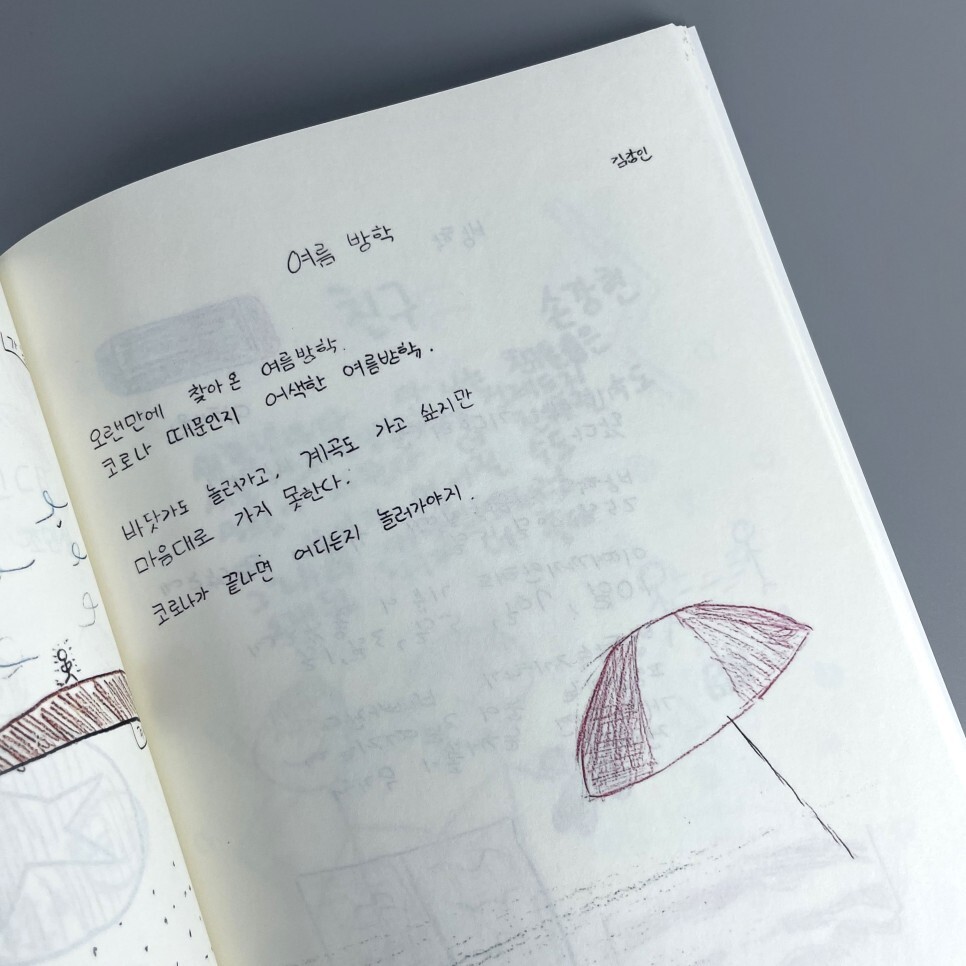 김강인
여름 방학
오랜만에 찾아온 여름방학.
코로나 때문인지 어색한 여름방학.
바닷가도 놀러가고, 계곡도 가고 싶지만
마음대로 가지 못한다.
코로나가 끝나면 어디든지 놀러가야지.